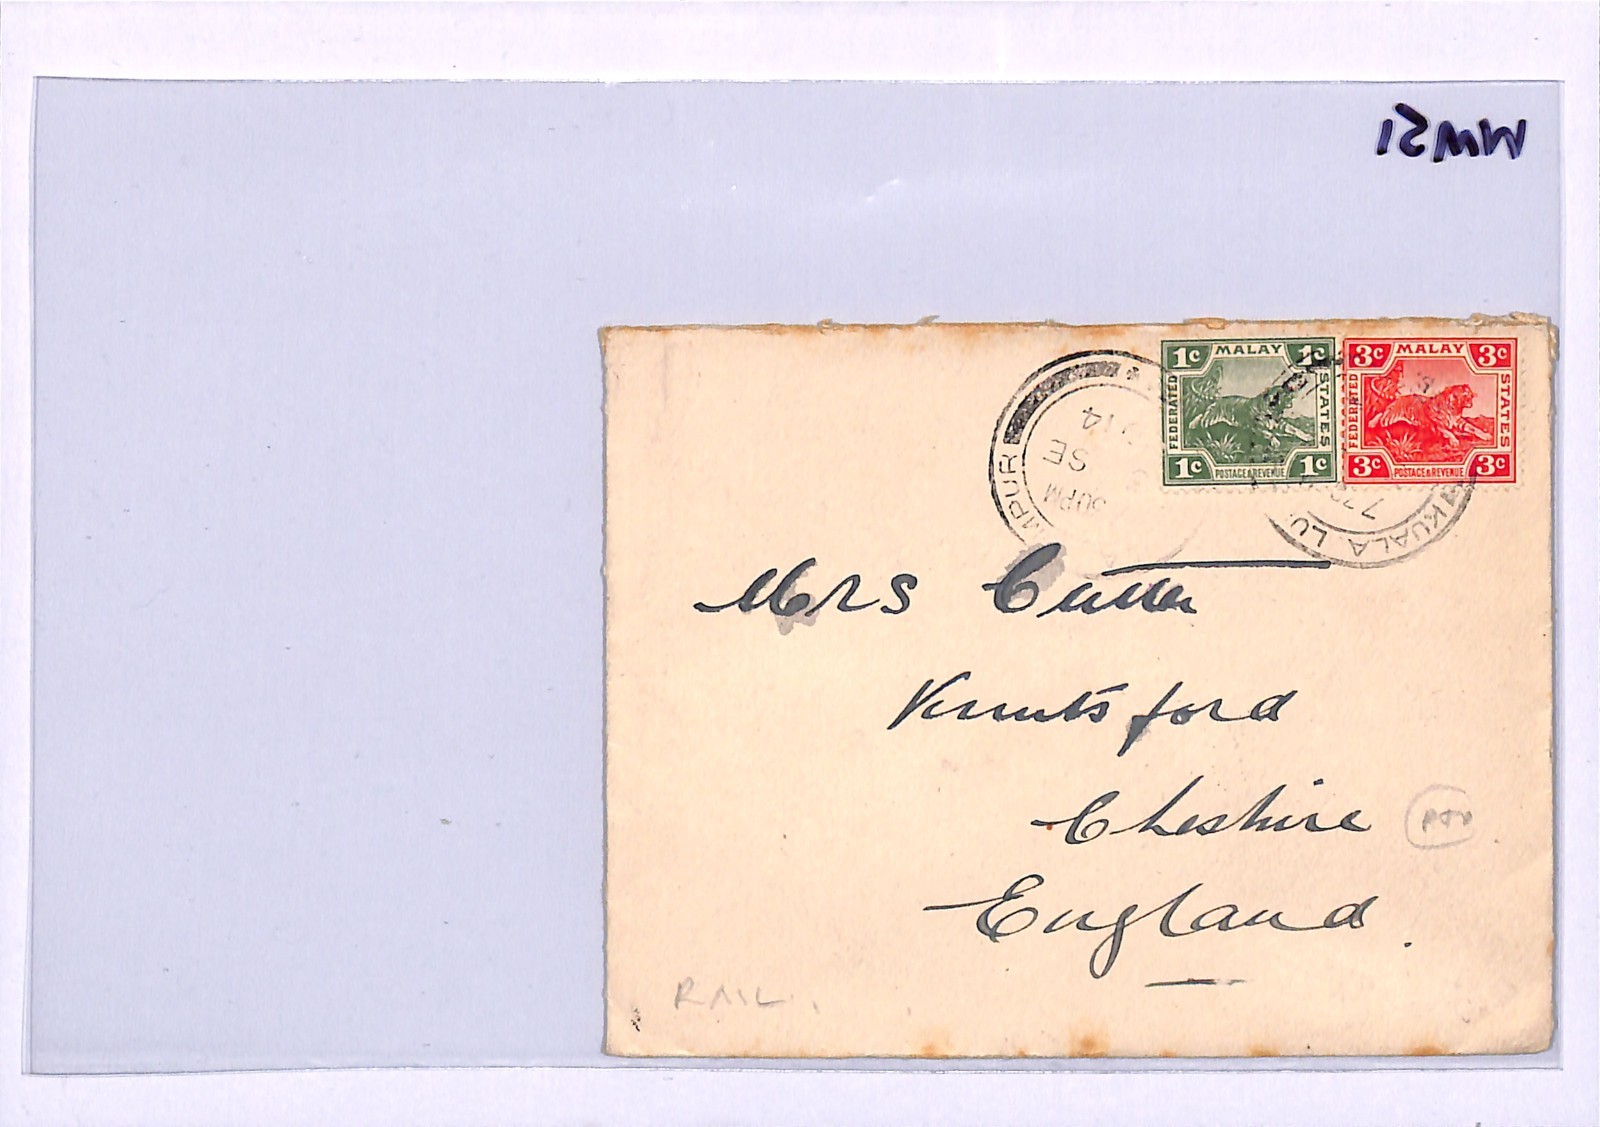 1c MALAY 1c
FEDERATED
STATES
1c POSTAGE & REVENUE 1c
3c MALAY 3c
FEDERATED
STATES
3c POSTAGE & REVENUE 3c
KUALA LU
MPUR
30PM
SE
14
Mrs Cutter
Knutsford
Cheshire
PTO
England.
RAIL.